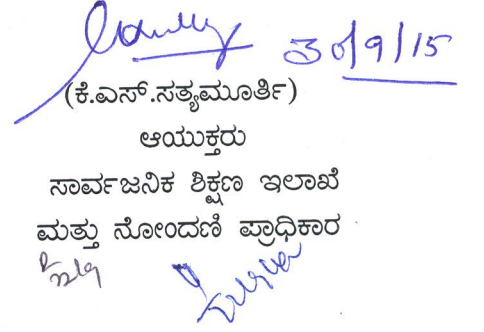 30/9/15
(ಕೆ.ಎಸ್.ಸತ್ಯಮೂರ್ತಿ)
ಆಯುಕ್ತರು
ಸಾರ್ವಜನಿಕ ಶಿಕ್ಷಣ ಇಲಾಖೆ
ಮತ್ತು ನೋಂದಣಿ ಪ್ರಾಧಿಕಾರ